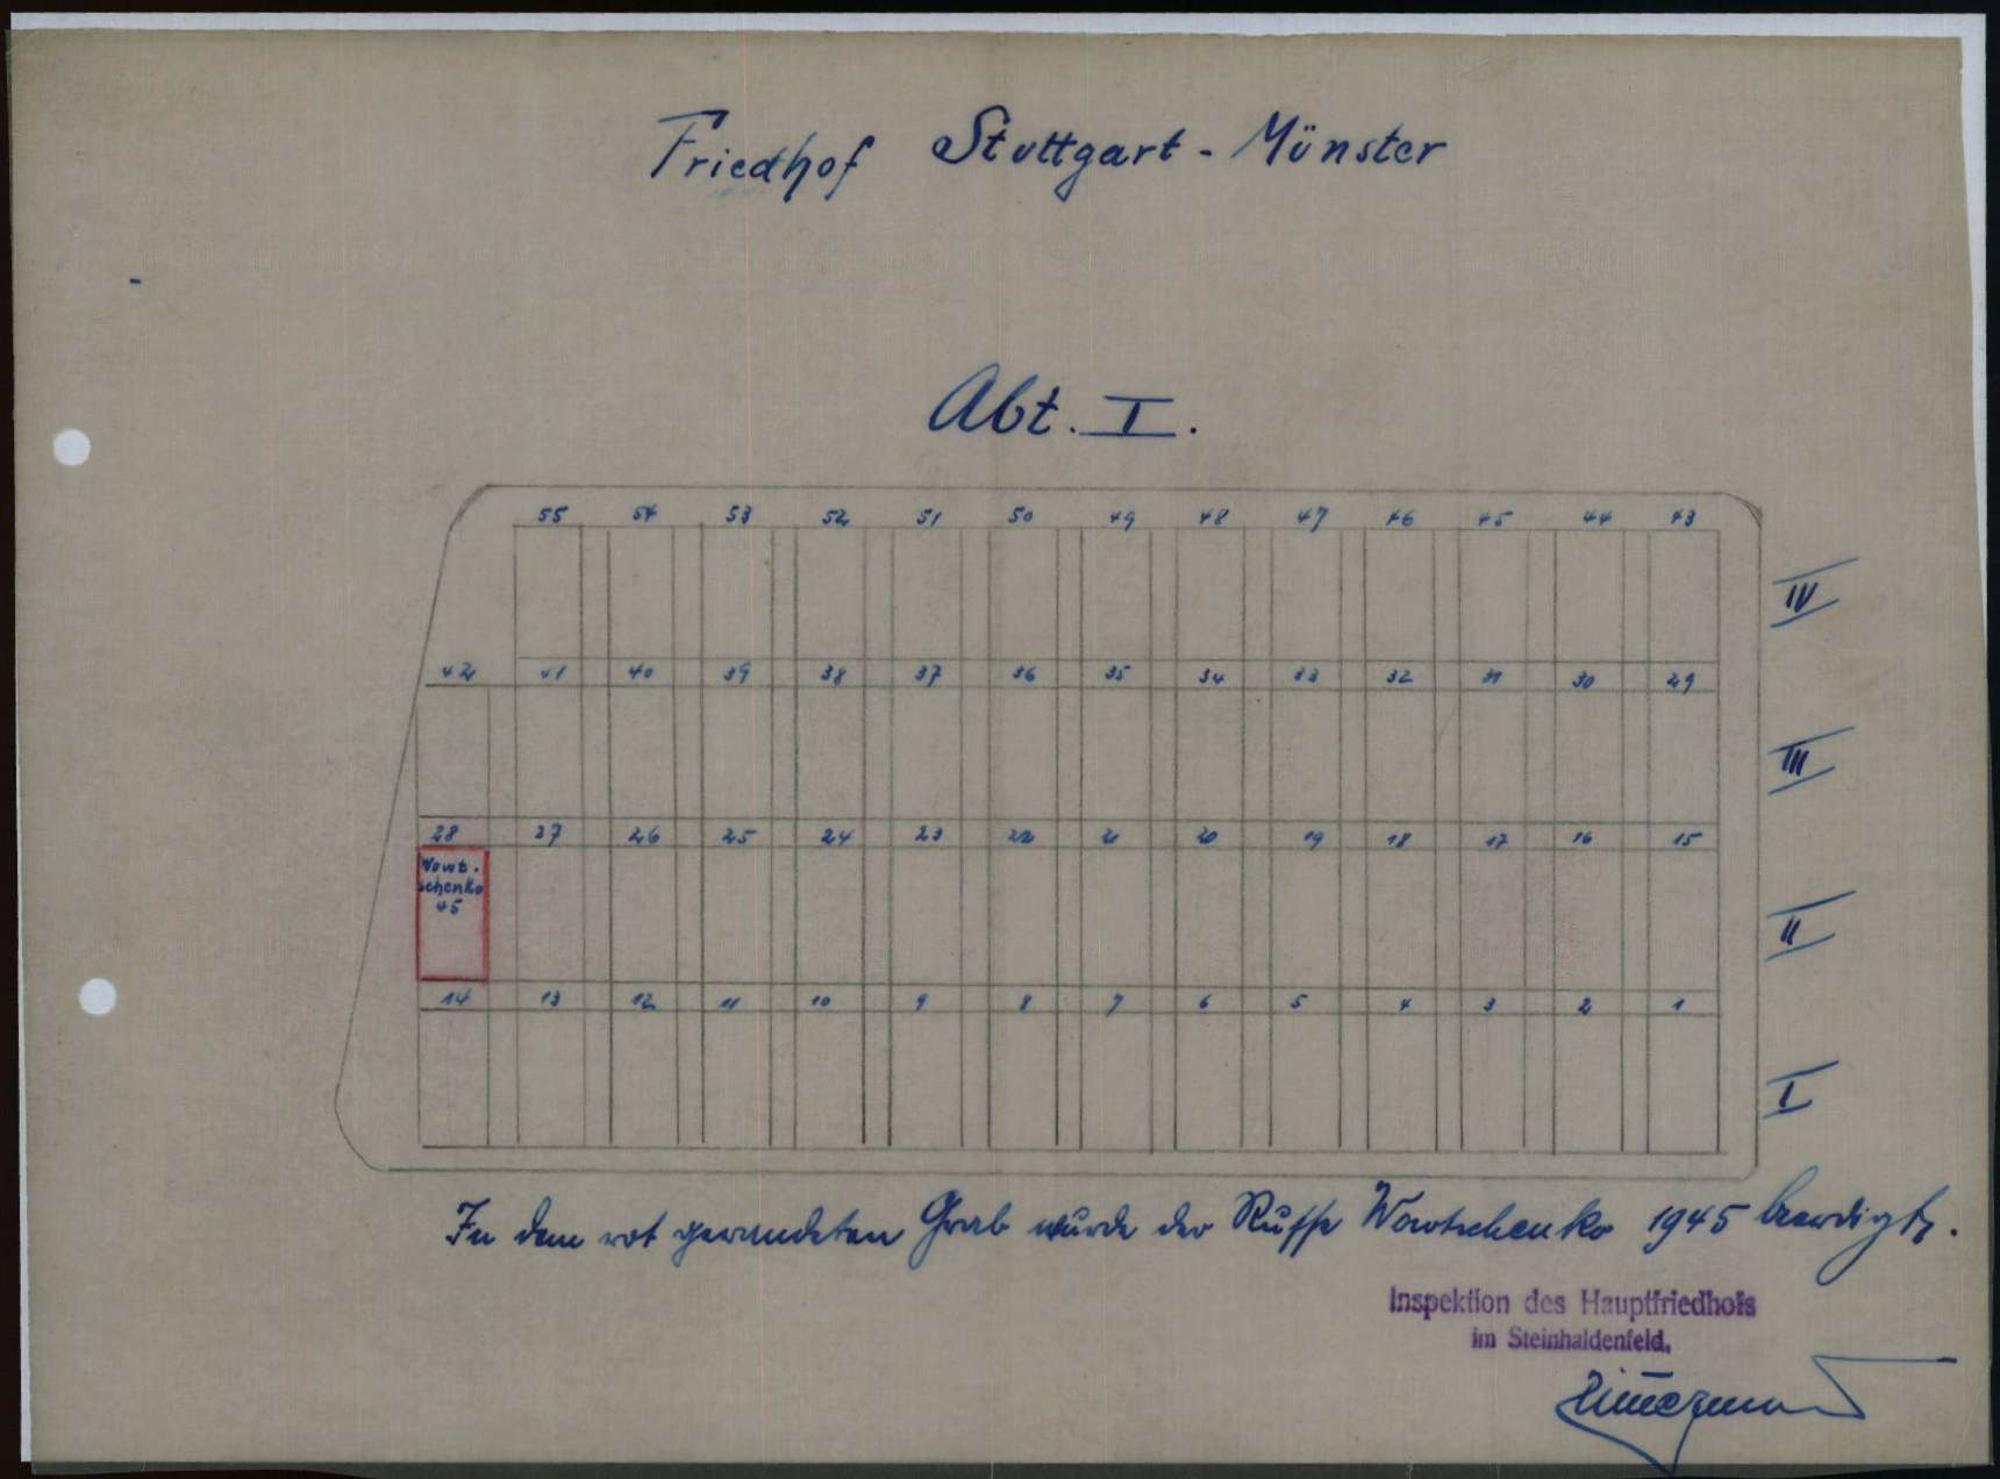 Friedhof Stuttgart - Münster
Abt. I.
55 54 53 52 51 50 49 48 47 46 45 44 43
IV
42 41 40 39 38 37 36 35 34 33 32 31 30 29
III
28 27 26 25 24 23 22 21 20 19 18 17 16 15
Wowt.
schenko
45
II
14 13 12 11 10 9 8 7 6 5 4 3 2 1
I
In dem rot gerandeten Grab wurde der Russe Wowtschenko 1945 beerdigt.
Inspektion des Hauptfriedhofs
im Steinhaldenfeld.